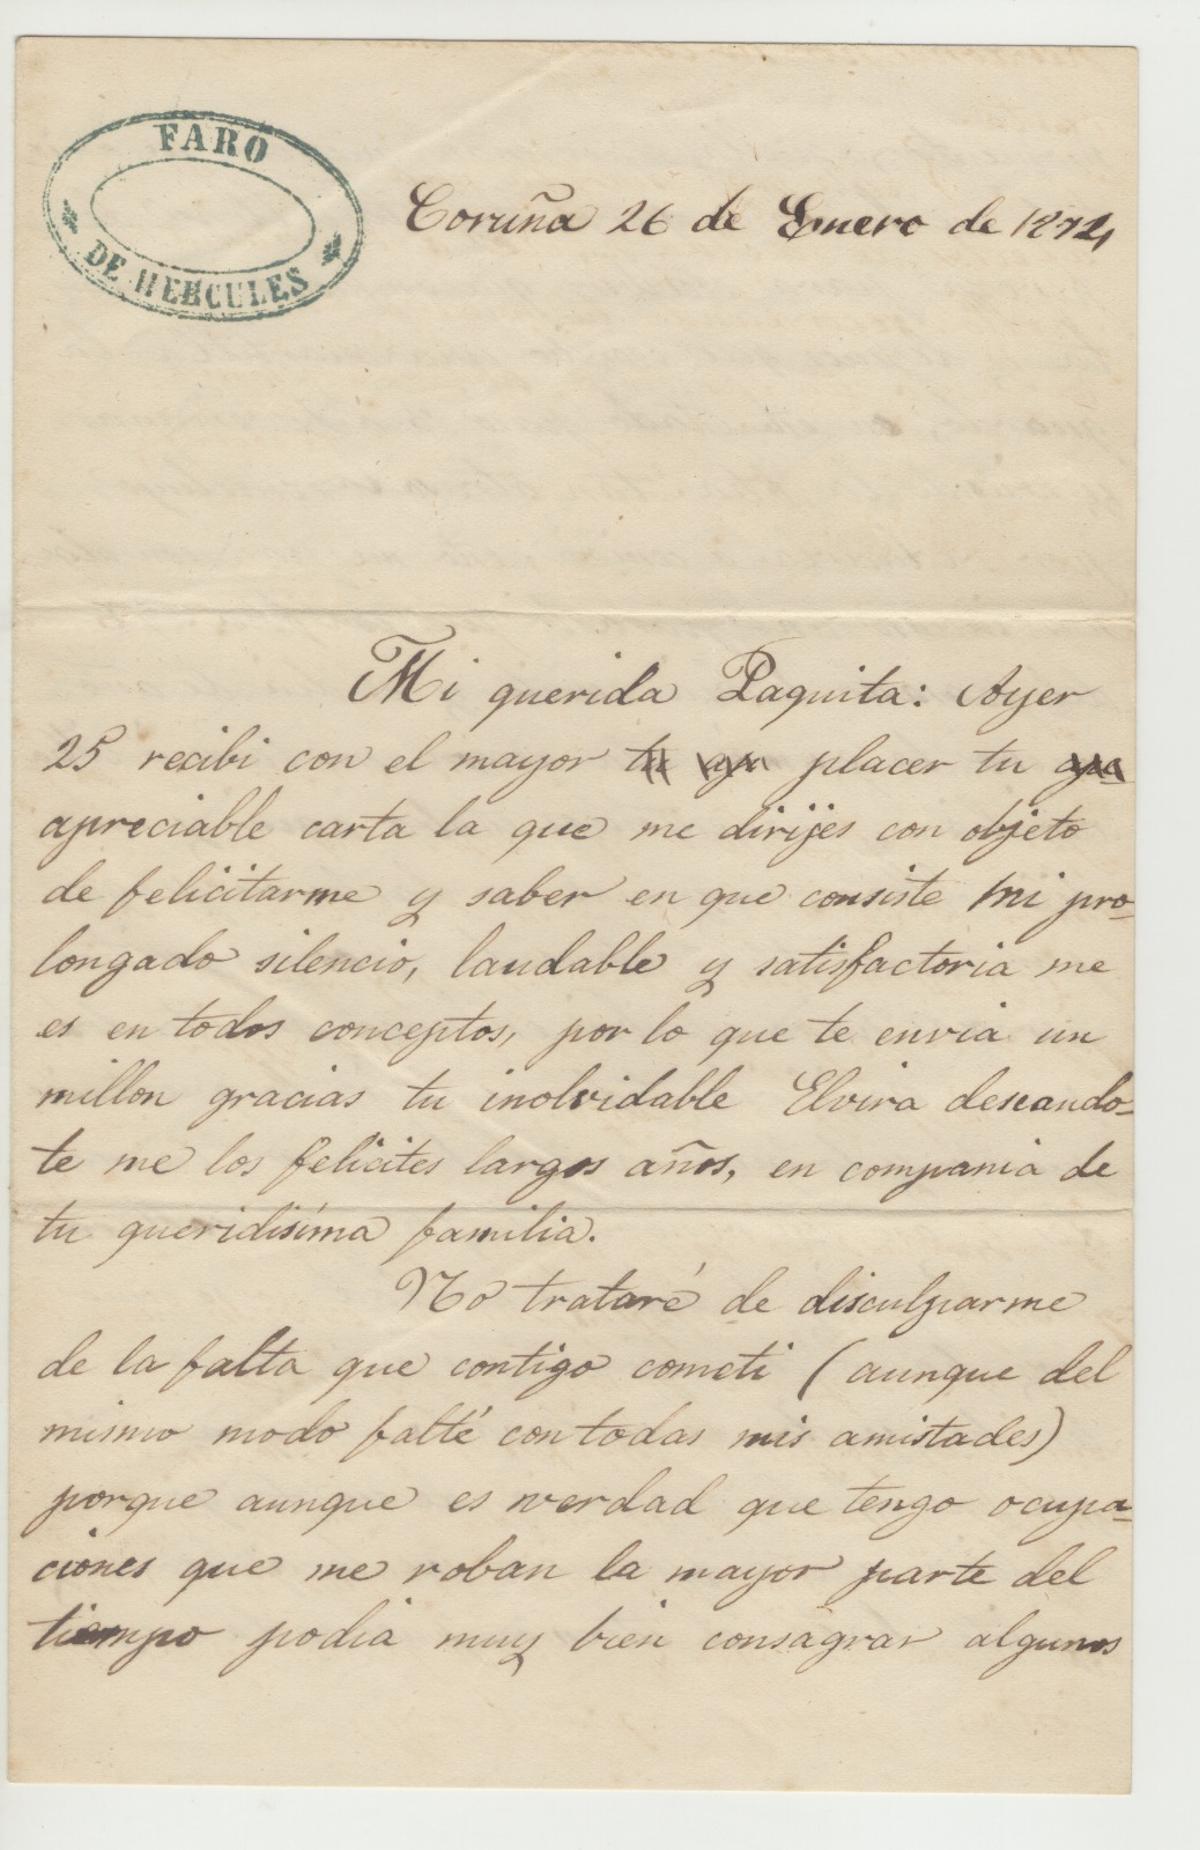 FARO
DE HERCULES
Coruña 26 de Enero de 1874
Mi querida Paquita: Ayer
25 recibi con el mayor tu ap placer tu apa
apreciable carta la que me dirijes con objeto
de felicitarme y saber en que consiste mi pro-
longado silencio, laudable y satisfactoria me
es en todos conceptos, por lo que te envia un
millon gracias tu inolvidable Elvira deseando-
te me los felicites largos años, en compania de
tu queridisíma familia.
No trataré de disculparme
de la falta que contigo cometi (aunque del
mismo modo falté con todas mis amistades)
porque aunque es verdad que tengo ocupa-
ciones que me roban la mayor parte del
tiempo podia muy bien consagrar algunos